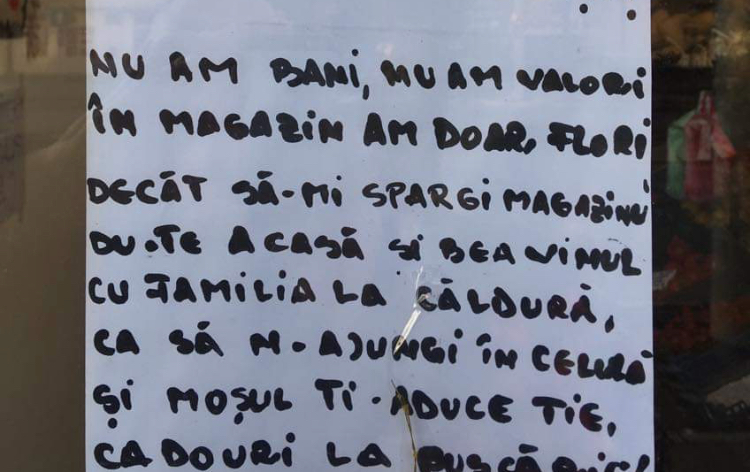 NU AM BANI, NU AM VALORI
ÎN MAGAZIN AM DOAR, FLORI
DECÂT SĂ-MI SPARGI MAGAZINU
DU-TE ACASĂ SI BEA VINUL
CU FAMILIA LA CĂLDURĂ,
CA SĂ N-AJUNGI ÎN CELULĂ
ȘI MOȘUL TI-ADUCE TIE,
CADOURI LA PUȘCĂRIE!